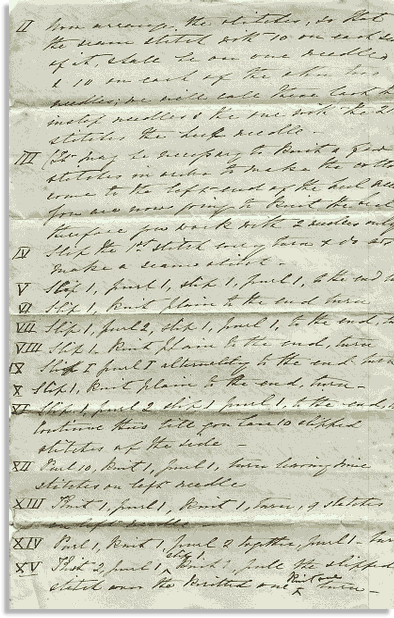 II Now arrange the stitches, so that
the seam stitch with 10 on each
of it, shall be on one needle
& 10 on each of the other two
needles; we will call these two
instep needles & the one with the 2
stitches the heel needle -
III It may be necessary to knit a few
stitches in order to make the cotton
come to the left end of the heel
you are now going to knit the heel
therefore you work with 2 needles only
IV Slip the 1st stitch every turn & do
make a seam stitch -
V Slip 1, purl 1, slip 1, purl 1, to the end
VI Slip 1, Knit plain to the end turn
VII Slip 1, purl 2, slip 1, purl 1, to the end,
VIII Slip 1, Knit plain to the end, turn
IX Slip 1 purl 1 alternately to the end turn
X Slip 1, Knit plain to the end, turn -
XI Slip 1, purl 2 slip 1 purl 1, to the end,
Continue this till you have 10 slipped
stitches up the side -
XII Purl 10, Knit 1, purl 1, turn leaving nine
stitches on left needle
XIII Knit 1, purl 1, Knit 1, turn, 9 stitches
on left needle
XIV Purl 1, Knit 1, purl 2 together, purl 1 - turn
XV Knit 2, purl 1, slip 1, Knit 1, pull the slipped
stitch over the knitted one Knit one turn -